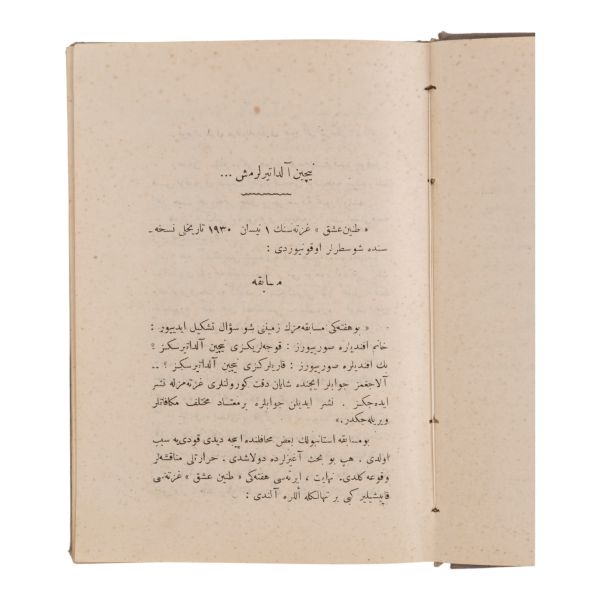 نیچین آلداتیرلرمش ...
« طنین عشق » غزته‌سنك ۱ نیسان ۱۹۳۰ تاریخلی نسخه ـ
سنده شو سطرلر اوقونیوردی :
مسابقه
« بو هفته‌كی مسابقه‌مزك زمینی شو سؤال تشكیل ایدییور :
خانم افندیلره صورییورز : قوجه‌لریكزی نیچین آلداتیرسكز ؟
بك افندیلره صورییورز : قاریلركزی نیچین آلداتیرسكز ؟ ..
آلاجغمز جوابلر ایچنده شایان دقت كورولنلری غزته‌مزله نشر
ایده‌جكز . نشر ایدیلن جوابلره برمعتاد مختلف مكافاتلر
ویریله‌جكدر.»
بو مسابقه استانبولك بعض محافلنده ایجه دیدی قودی‌یه سبب
اولدی . هپ بو بحث آغیزلرده دولاشدی . حرارتلی مناقشه‌لر
وقوعه كلدی. نهایت ، ایرته‌سی هفته‌كی « طنین عشق » غزته‌سی
قاپیشیلیر كبی بر تهالكله اللره آلندی :